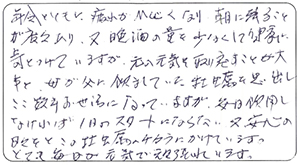 年令とともに、疲れがひどくなり 朝に残ること
が度々あり、又晩酒の量を少なくして健康に
気をつけていますが、私の元気を取り戻すことが大
事と、母が父に飲ませていた牡蠣を思い出し
ここ数年お世話になっていますが、毎日飲用し
なければ1日のスタートにならない 又安心の
日々をこの牡蠣のチカラにかけています。
とても毎日が元気で頑張れています。